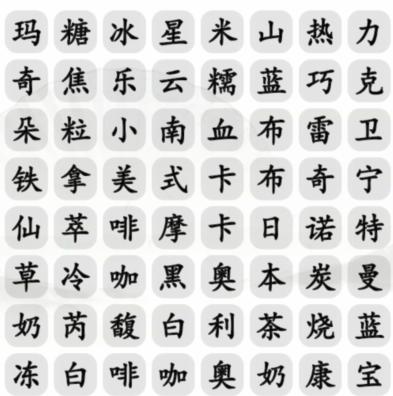 玛糖冰星米山热力
奇焦乐云糯蓝巧克
朵粒小南血布雷卫
铁拿美式卡布奇宁
仙萃啡摩卡日诺特
草冷咖黑奥本炭曼
奶芮馥白利茶烧蓝
冻白啡咖奥奶康宝